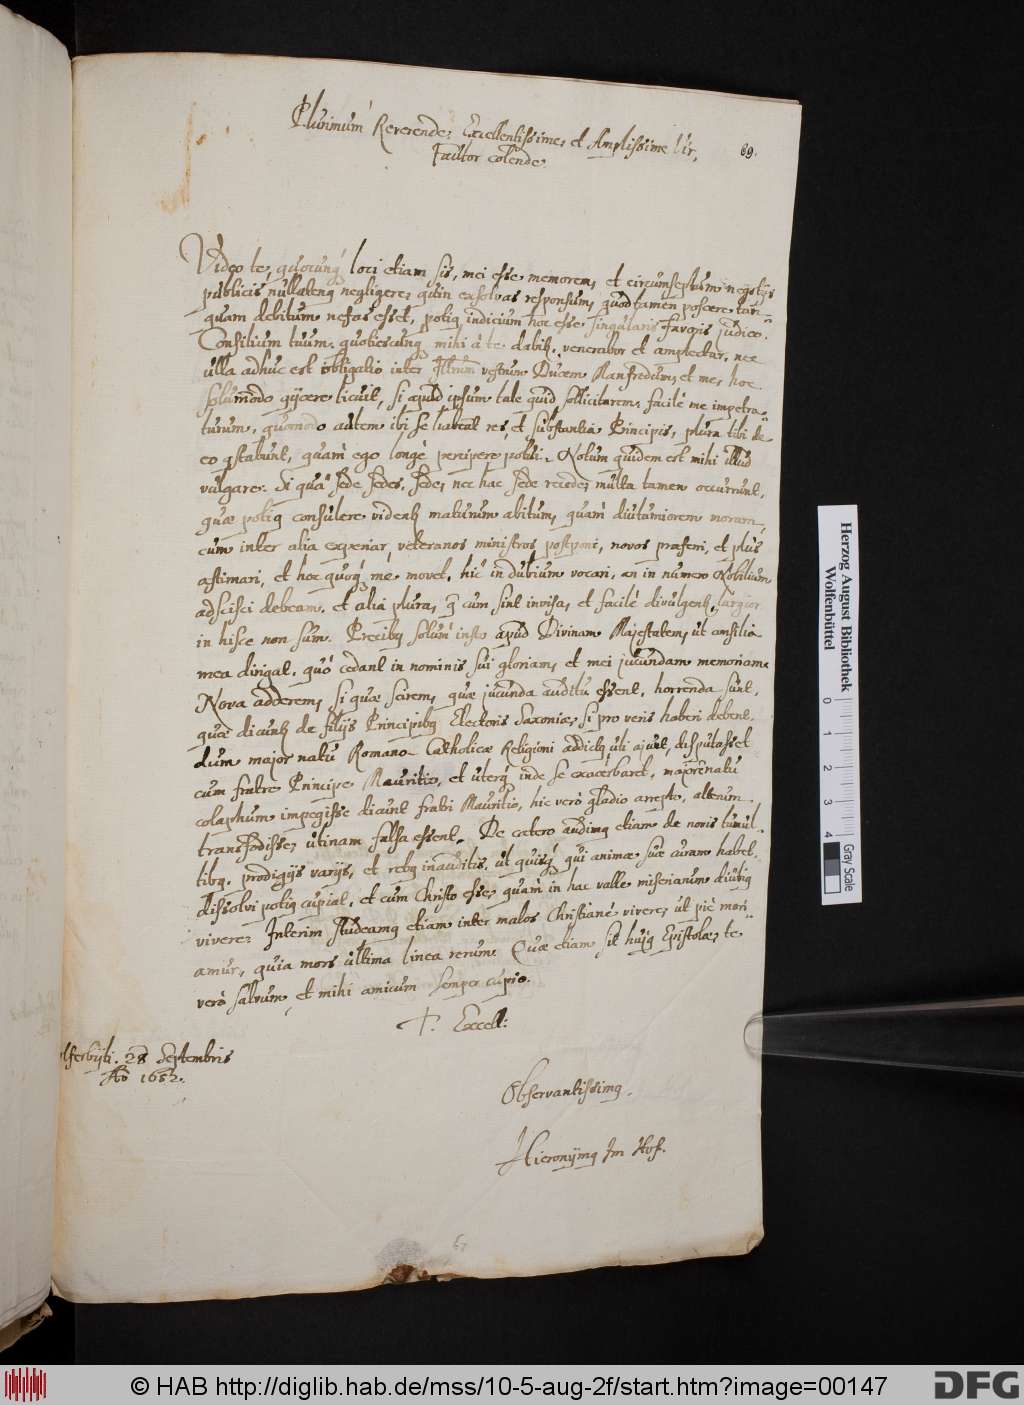 Plurimùm Reverende, Excellentissime, et Amplissime Vir,
Fautor colende.
89.
Video te, quocunq́ loci etiam sis, mei esse memorem, et circumseptum negotijs
publicis nullateng negligere, quin exsolvas responsum, quod tamen poscere tan-
quam debitum nefas esset, potiq indicium hoc esse singularis favoris judico.
Consilium tuum, quotiescunq mihi à te dabit, venerabor et amplectar, nec
ulla adhuc est obligatio inter Illtrum vestrum Ducem Manfredum, et me, hoc
solummodo ejicere licuit, si apud ipsum tale quid sollicitarem, facilè me impetra-
turum, quomodo autem ibi se habeat res, et substantia Principis, plura tibi de
eo constabunt, quàm ego longè percipere potui. Notum quidem est mihi illud
vulgare: Si qua sede sedes, sede, nec hac sede recede, multa tamen occurrunt,
quæ potiq consulere vident maturum abitum, quàm diuturniorem moram,
cum inter alia experiar, veteranos ministros postponi, novos præferri, et plus
æstimari, et hoc quoq́ me movet, hic in dubium vocari, an in numero Nobilium
adscisci debeam, et alia plura, q cum sint invisa, et facilè divulgent, largior
in hisce non sum. Precibq solùm insto apud Divinam Majestatem, ut consilia
mea dirigat, quò cedant in nominis sui gloriam, et mei jucundam memoriam.
Nova adderem, si quæ scirem, quæ jucunda auditu essent, horrenda sunt,
quæ dicunt de filijs Principibq Electoris Saxoniæ, si pro veris haberi debent,
dum major natu Romano-Catholicæ Religioni addictq uti ajunt, disputasset
cum fratre Principe Mauritio, et uterq́ inde se exacerbaret, majorem natu
colaphum impegisse dicunt fratri Mauritio, hic verò gladio arrepto, alterum
transfodisse, utinam falsa essent. De cætero audimq etiam de novis tumul-
tibq, prodigijs varijs, et rebq inauditis, ut quisq́, qui animæ suæ curam habet,
dissolvi potiq cupiat, et cum Christo esse, quàm in hac valle miseriarum diutiq
vivere. Interim studeamq etiam inter malos Christianè vivere, ut piè mori-
amur, quia mors ultima linea rerum. Quæ etiam sit hujq Epistolæ, te
verò salvum, et mihi amicum semper cupio.
T. Excell:
28 Septembris
Ao 1652.
Observantissimq.
Hieronymq Im Hof.
Herzog August Bibliothek
Wolfenbüttel
0 1 2 3 4
Gray Scale
© HAB http://diglib.hab.de/mss/10-5-aug-2f/start.htm?image=00147
DFG